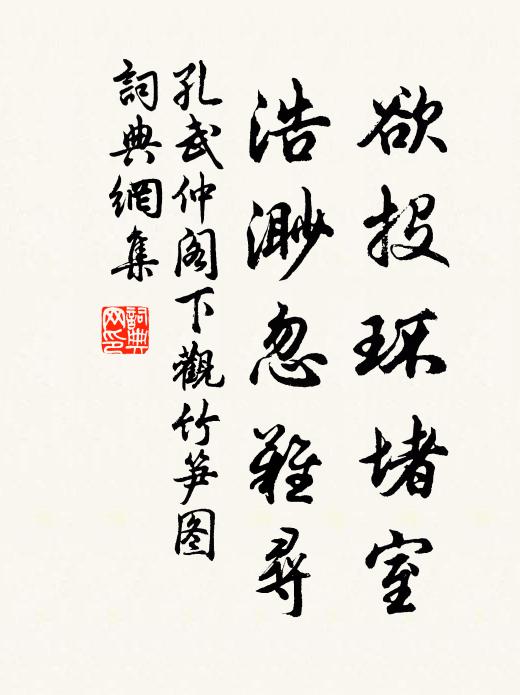 欲投环堵室
浩渺忽難尋
孔武仲阁下觀竹笋图
詞典網集
詞典网印